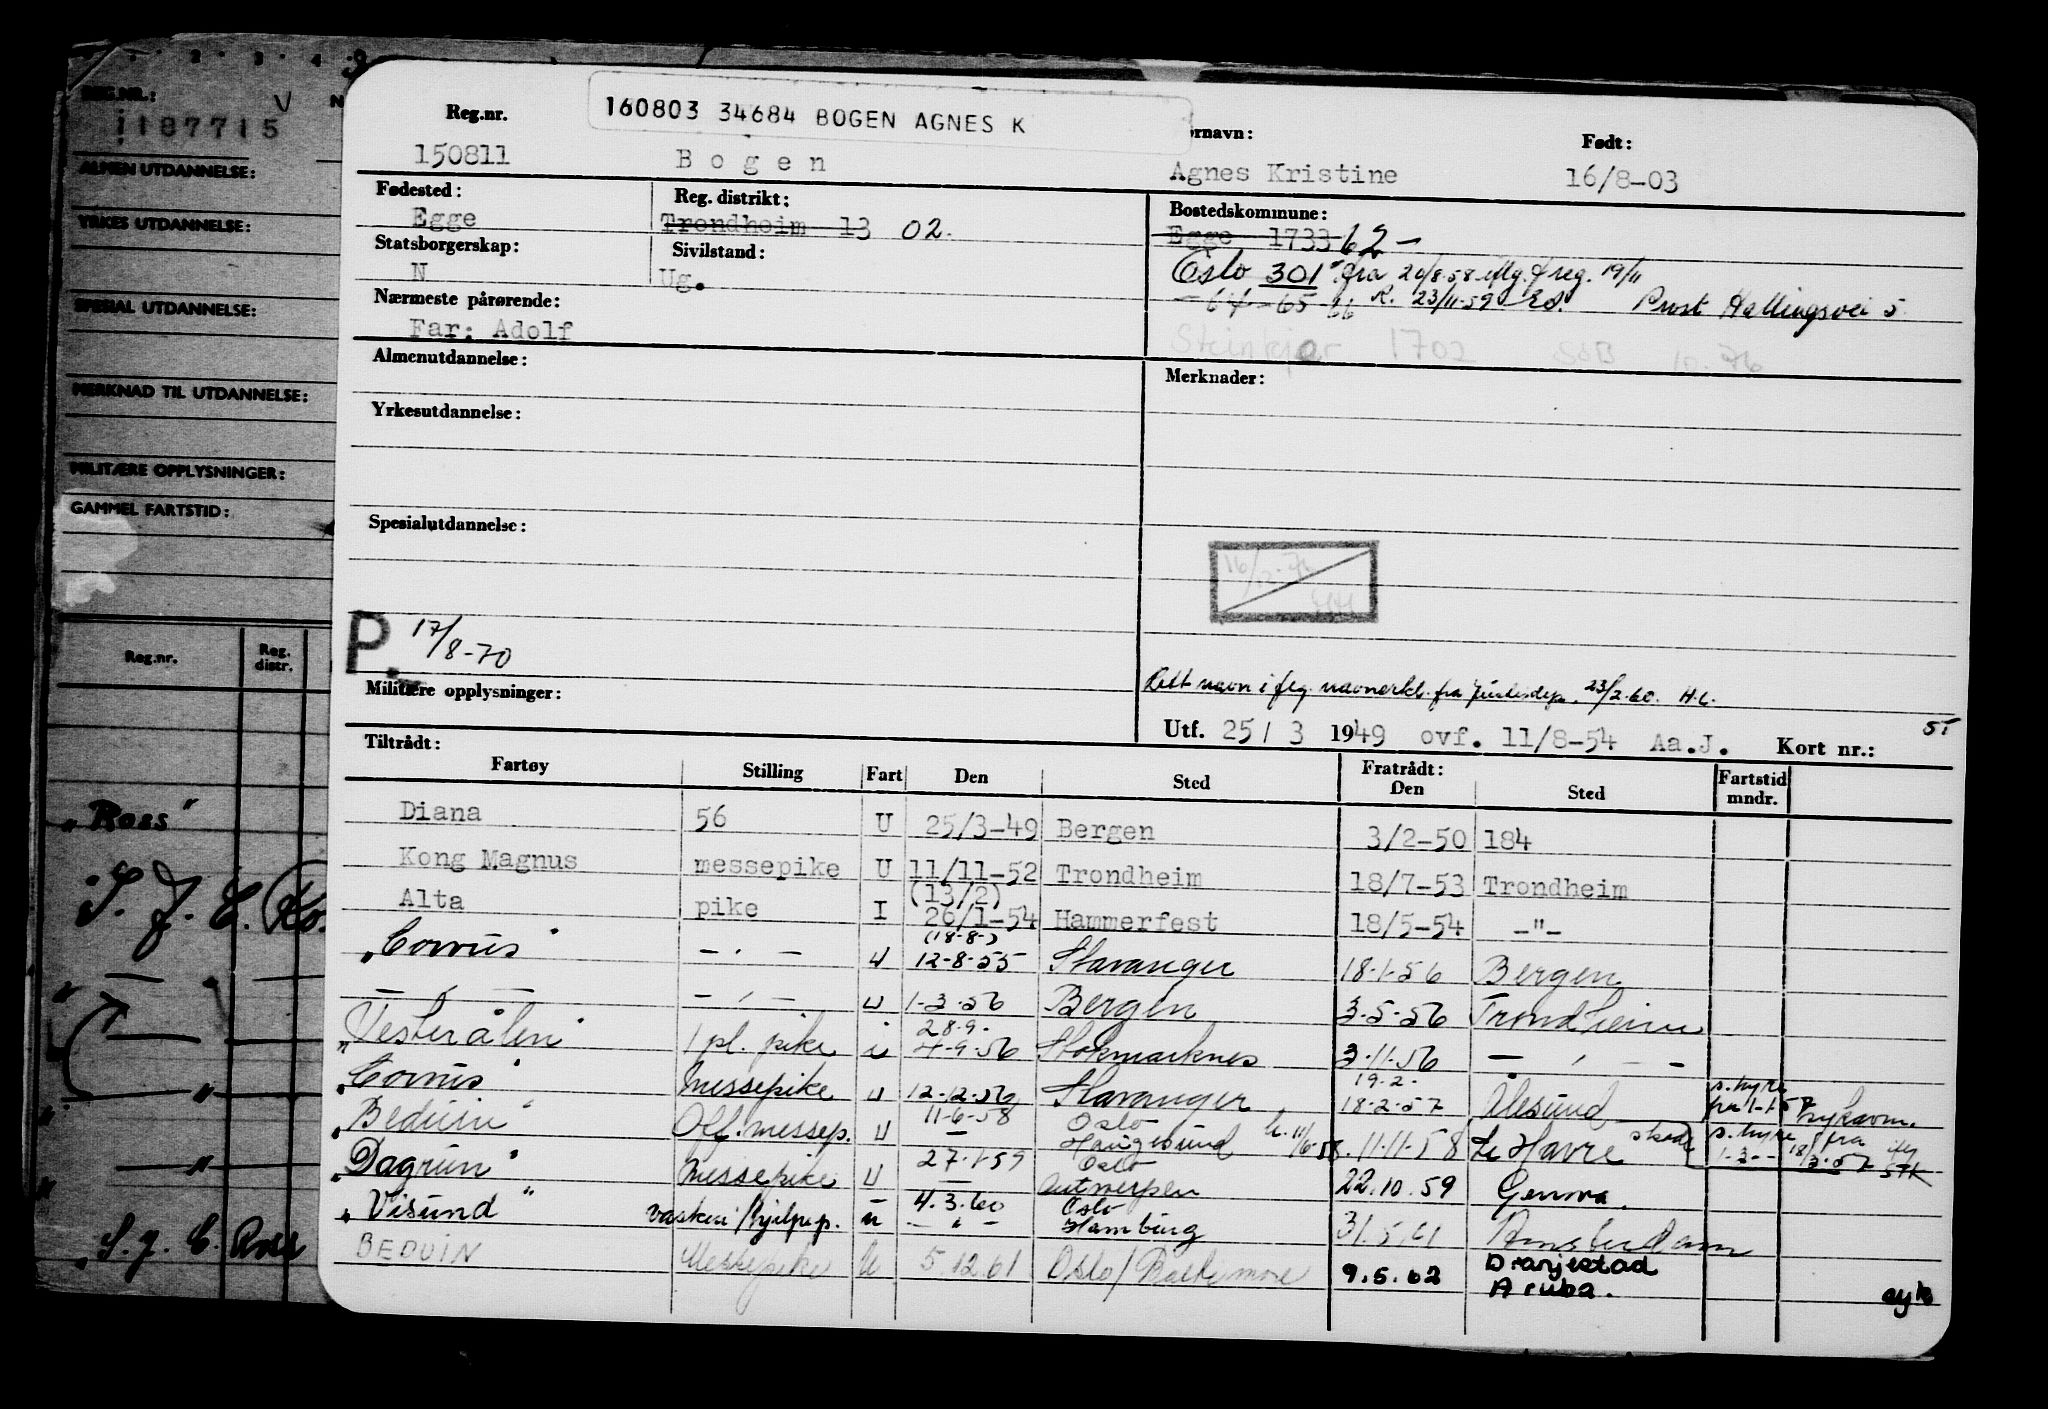 REG.NR.:
1187715
ALMEN UTDANNELSE:
YRKES UTDANNELSE:
SPESIAL UTDANNELSE:
MERKNAD TIL UTDANNELSE:
MILITÆRE OPPLYSNINGER:
GAMMEL FARTSTID:
Reg.nr. Reg. distr.
"Ross"
S. J. C.
S. J. C. Ross
160803 34684 BOGEN AGNES K
Reg.nr. ornavn: Født:
150811 Bogen Agnes Kristine 16/8-03
Fødested: Reg. distrikt: Bostedskommune:
Egge Trondheim 13 02. Egge 1733 62 -
Statsborgerskap: Sivilstand: Oslo 301 fra 20/8-58 iflg. freg. 19/11
N Ug. - 64 - 65 66 R. 23/11-59 Prost Hallingsvei 5.
Nærmeste pårørende:
Far: Adolf Steinkjer 1702 SøB 10.76
Almenutdannelse: Merknader:
Yrkesutdannelse:
Spesialutdannelse:
P. 17/8-70
Rett navn i flg. navnerkl. fra Justisdep. 23/2-60. H.L.
Militære opplysninger:
Utf. 25/3 1949 ovf. 11/8-54 Aa.J. Kort nr.:
Tiltrådt: Fratrådt:
Fartøy Stilling Fart Den Sted Den Sted Fartstid mndr.
Diana 56 U 25/3-49 Bergen 3/2-50 184
Kong Magnus messepike U 11/11-52 Trondheim 18/7-53 Trondheim
Alta pike I (13/2) 26/1-54 Hammerfest 18/5-54 -"-
"Corvus" - " - u (18-8-) 12-8-55 Stavanger 18-1-56 Bergen
- " - - " - u 1-3-56 Bergen 3-5-56 Trondheim
"Vesterålen" 1 pl. pike i 28.9. 4-9-56 Stokmarknes 3-11-56 - " -
"Corvus" messepike u 12-12-56 Stavanger 19.2. 18-2-57 Ålesund s. hyre fra 1-1-57
"Beduin" Off. messep. u 11-6-58 Oslo Haugesund 11-11-58 Le Havre s. hyre fra
"Dagrun" messepike u 27-1-59 Oslo Antwerpen 22.10.59 Genova.
"Visund" vaskeri/hjelpep. u 4.3.60 Oslo Hamburg 31.5.61 Amsterdam
BEDUIN Messepike U 5.12.61 Oslo/Baltimore 9.5.62 Oranjestad Aruba. syk